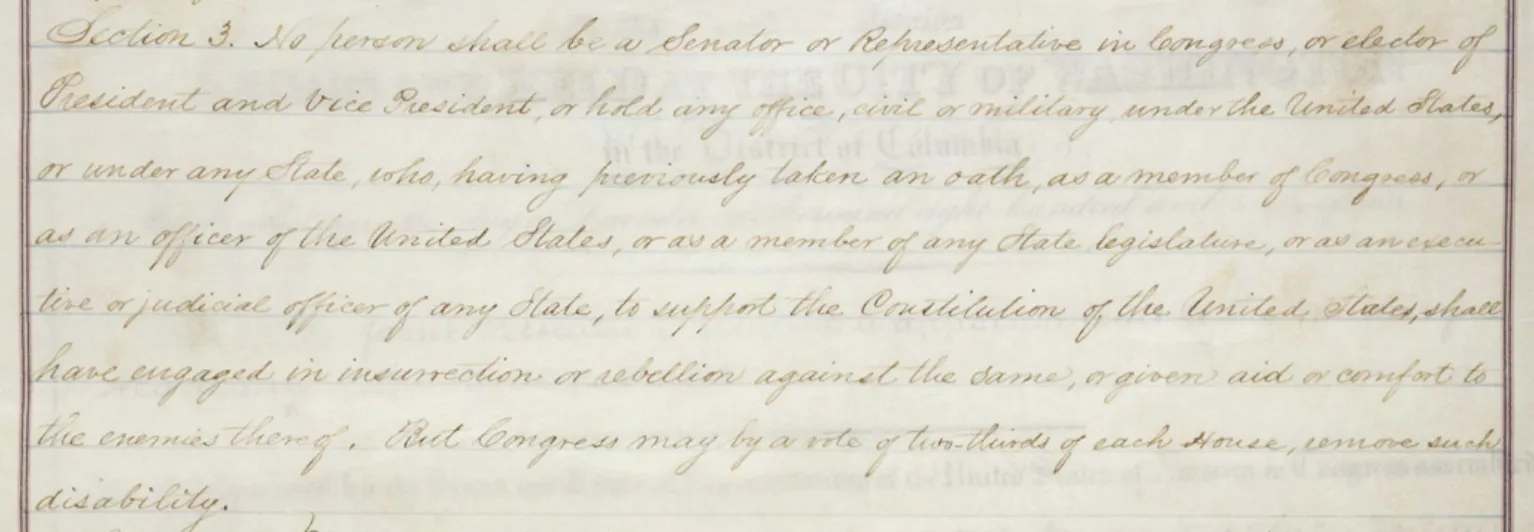 Section 3. No person shall be a Senator or Representative in Congress, or elector of
President and Vice President, or hold any office, civil or military, under the United States,
or under any State, who, having previously taken an oath, as a member of Congress, or
as an officer of the United States, or as a member of any State legislature, or as an execu-
tive or judicial officer of any State, to support the Constitution of the United States, shall
have engaged in insurrection or rebellion against the same, or given aid or comfort to
the enemies thereof. But Congress may by a vote of two-thirds of each House, remove such
disability.